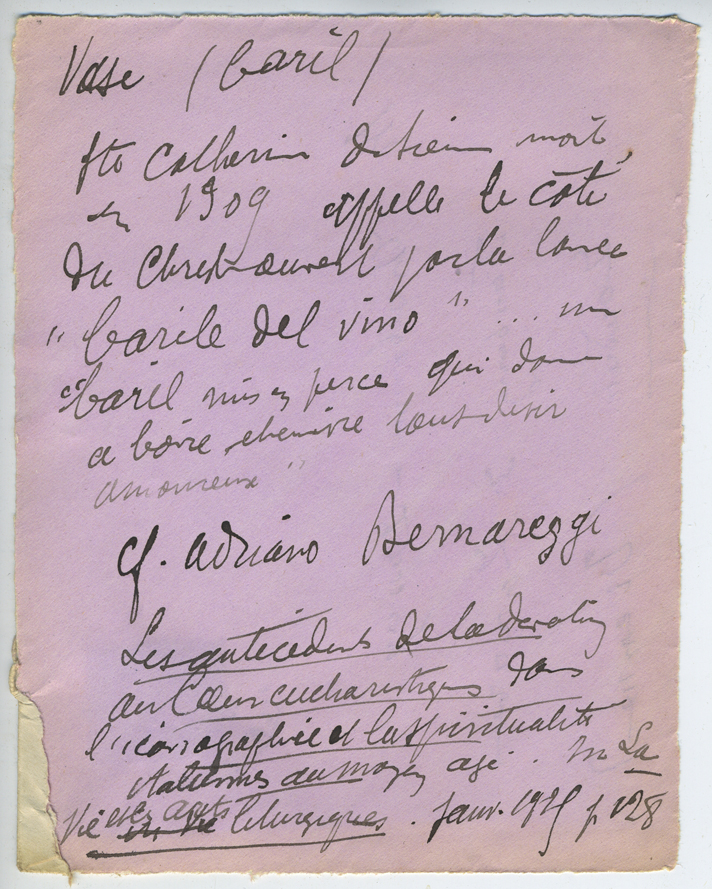 Vase (baril)
Ste Catherine de Sienne morte
en 1309 appelle le côté
du Christ ouvert par la lance
"barile del vino" ... un
baril mis en perce qui donne
a boire et enivre tout désir
amoureux"
cf. Adriano Bernareggi
Les antécédents de la dévotion
au Cœur eucharistique dans
l'iconographie et la spiritualité
italiennes au moyen age. In La
Vie et les arts liturgiques. Janv. 1925 p 128